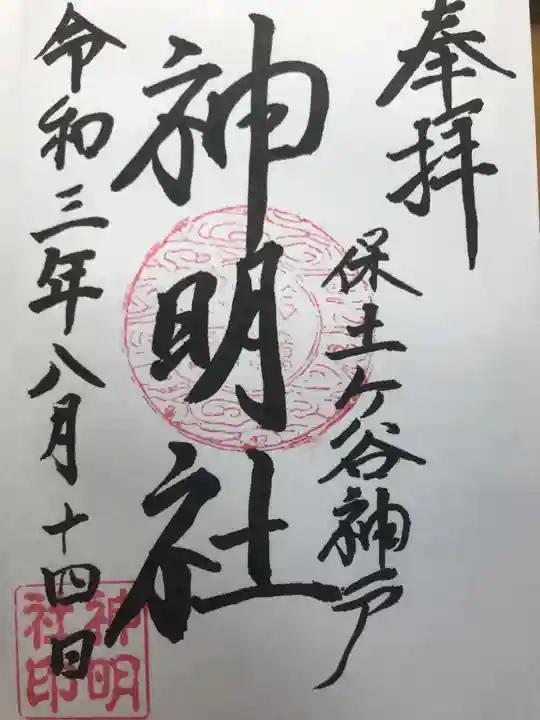 奉拝
保土ケ谷神戸
神明社
令和三年八月十四日
神明
社印